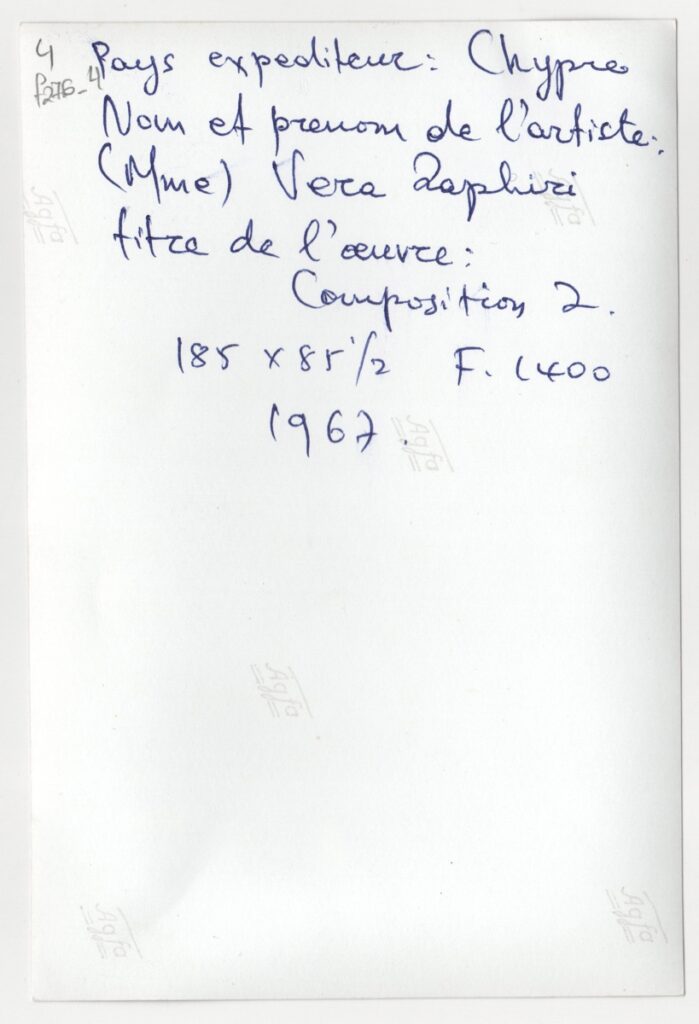 4
f276_4
Pays expediteur: Chypre
Nom et prenom de l'artiste:
(Mme) Vera Zaphiri
titre de l'œuvre:
Composition 2.
185 x 85 1/2 F. 1400
1967.
Agfa
Agfa
Agfa
Agfa
Agfa
Agfa